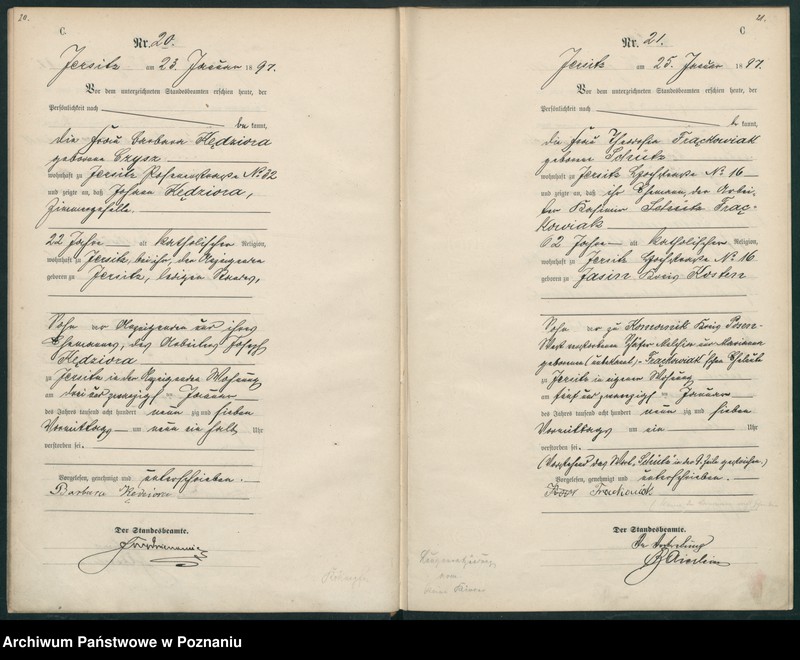 20.
C.
Nr. 20.
Jersitz am 23. Januar 1897.
Vor dem unterzeichneten Standesbeamten erschien heute, der
Persönlichkeit nach
be kannt,
die Frau Barbara Kędziora
geborene Czysz
wohnhaft zu Jersitz No 32
und zeigte an, daß Johann Kędziora,
Zimmergeselle
22 Jahre alt katholischer Religion,
wohnhaft zu Jersitz, bei ihr, der Anzeigenden
geboren zu Jersitz, ledigen Standes,
Sohn der Anzeigenden und ihres
Ehemannes, des Arbeiters Joseph
Kędziora
zu Jersitz in der Anzeigenden Wohnung
am drei und zwanzigsten Januar
des Jahres tausend acht hundert neun zig und sieben
Vormittags um neun ein halb Uhr
verstorben sei.
Vorgelesen, genehmigt und unterschrieben.
Barbara Kędziora
Der Standesbeamte.
21.
C
Nr. 21.
Jersitz am 25. Januar 1897.
Vor dem unterzeichneten Standesbeamten erschien heute, der
Persönlichkeit nach
be kannt,
die Frau Theophila Frąckowiak
geborene Schütz
wohnhaft zu Jersitz No 16
und zeigte an, daß ihr Ehemann, der Arbei-
ter Kasimir Schütz Frąc-
kowiak
62 Jahre alt katholischer Religion,
wohnhaft zu Jersitz No 16
geboren zu Jasin Kreis Kosten
Sohn der zu Komornik Kreis Posen-
West verstorbenen Melchior und Marianna
geborene (unbekannt) Frąckowiak'schen Eheleute
zu Jersitz in eigener Wohnung
am fünf und zwanzigsten Januar
des Jahres tausend acht hundert neun zig und sieben
Vormittags um ein Uhr
verstorben sei.
(Vorstehend das Wort "Schütz" in der 9. Zeile gestrichen.)
Vorgelesen, genehmigt und unterschrieben.
Frąckowiak
Der Standesbeamte.
In Vertretung
Archiwum Państwowe w Poznaniu